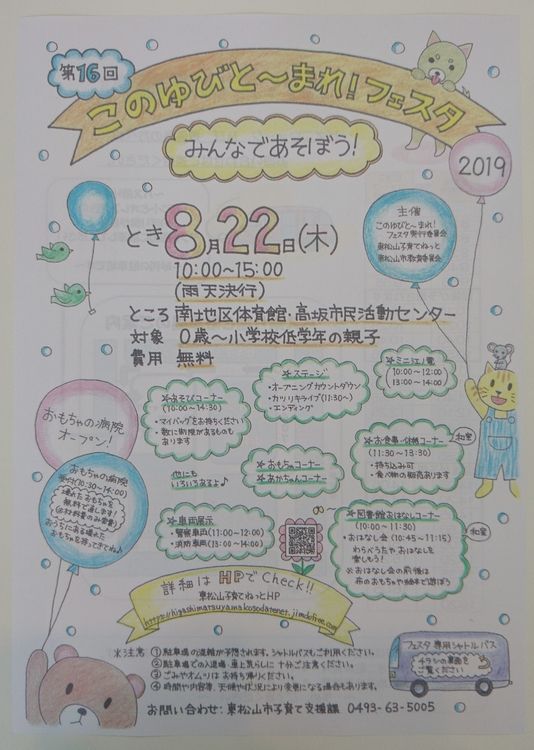 第16回
このゆびと～まれ!フェスタ
みんなであそぼう!
2019
主催
このゆびと～まれ!
フェスタ実行委員会
東松山子育てねっと
東松山市教育委員会
とき 8月22日(木)
10:00～15:00
(雨天決行)
ところ 南地区体育館・高坂市民活動センター
対象 0歳～小学校低学年の親子
費用 無料
おもちゃの病院
オープン!
おもちゃの病院
受付(10:30～14:00)
壊れたおもちゃを
無料で直します!
(材料費のみ実費)
おうちにある壊れた
おもちゃを持ってきてね♪
☆あそびコーナー
(10:00～14:30)
・マイバッグをお持ちください
・数に制限があるものも
あります
☆ステージ
・オープニングカウントダウン
・カツリキライブ(11:30～)
・エンディング
☆ミニ江ノ電
(10:00～12:00)
(13:00～14:00)
☆お食事・休憩コーナー
(11:30～13:30)
・持ち込み可
・食べ物の販売あります
和室
他にも
いろいろあるよ♪
☆おもちゃコーナー
☆あかちゃんコーナー
☆車両展示
・警察車両(11:00～12:00)
・消防車両(13:00～14:00)
☆図書館おはなしコーナー
(10:00～11:30)
・おはなし会(10:45～11:15)
わらべうたや おはなしを
楽しもう!
※おはなし会の前後は
布のおもちゃや絵本で遊ぼう
和室
詳細は HPでCheck!!
東松山子育てねっとHP
https://higashimatsuyamakosodatenet.jimdofree.com
※注意 ①駐車場の混雑が予想されます。シャトルバスもご利用ください。
②駐車場での入退場・車上荒らしに十分ご注意ください。
③ごみやオムツはお持ち帰りください。
④時間や内容等、天候や状況により変更になる場合もあります。
フェスタ専用シャトルバス
チラシの裏面を
ご覧ください
お問い合わせ:東松山市子育て支援課 0493-63-5005